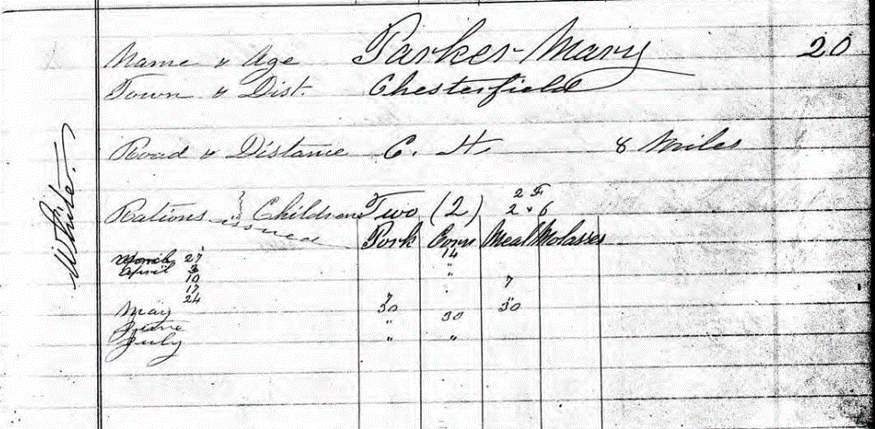 Name & Age Parker Mary 20
Town & Dist. Chesterfield
Road & Distance C. H. 8 Miles
White.
Rations } Children Two (2) 2 F
issued 2 & 6
Pork Corn Meal Molasses
March 27 14
April 3 "
10 " 7
17
24 "
May 30 30 30
June " "
July " "